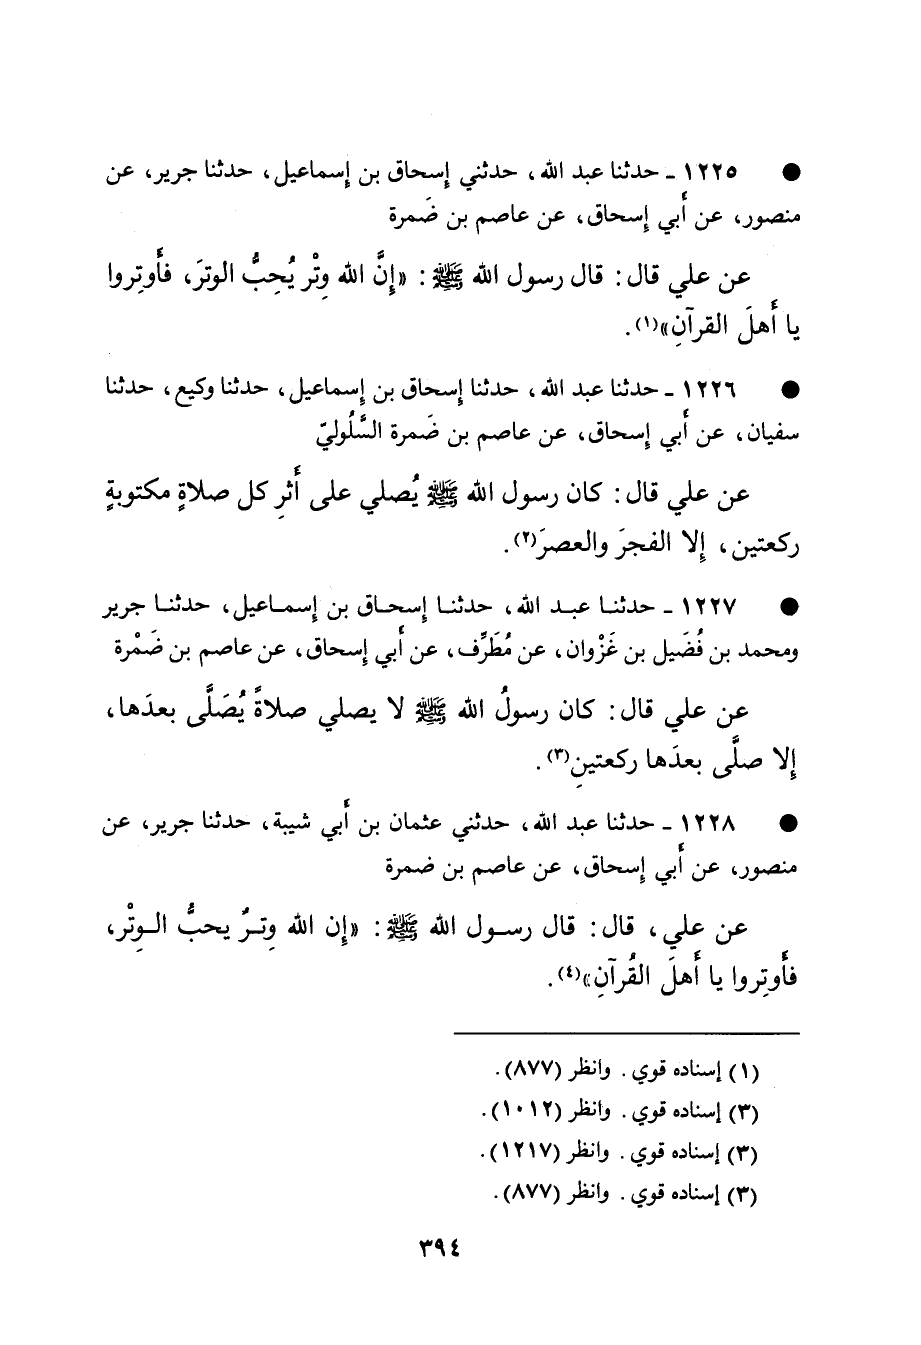 ● ١٢٢٥ ـ حدثنا عبد الله، حدثني إسحاق بن إسماعيل، حدثنا جرير، عن
منصور، عن أبي إسحاق، عن عاصم بن ضَمرة
عن علي قال: قال رسول الله ﷺ: «إنَّ الله وِتْر يُحِبُّ الوترَ، فأَوتِروا
يا أَهلَ القرآنِ»(١).
● ١٢٢٦ ـ حدثنا عبد الله، حدثنا إسحاق بن إسماعيل، حدثنا وكيع، حدثنا
سفيان، عن أبي إسحاق، عن عاصم بن ضَمرة السَّلُوليّ
عن علي قال: كان رسول الله ﷺ يُصلي على أَثرِ كل صلاةٍ مكتوبةٍ
ركعتين، إلا الفجرَ والعصرَ(٢).
● ١٢٢٧ ـ حدثنا عبد الله، حدثنا إسحاق بن إسماعيل، حدثنا جرير
ومحمد بن فُضَيل بن غَزْوان، عن مُطَرِّف، عن أبي إسحاق، عن عاصم بن ضَمْرة
عن علي قال: كان رسولُ الله ﷺ لا يصلي صلاةً يُصَلَّى بعدَها،
إلا صلَّى بعدَها ركعتينِ(٣).
● ١٢٢٨ ـ حدثنا عبد الله، حدثني عثمان بن أبي شيبة، حدثنا جرير، عن
منصور، عن أبي إسحاق، عن عاصم بن ضمرة
عن علي، قال: قال رسول الله ﷺ: «إن الله وِترٌ يحبُّ الوِتْر،
فأَوتِروا يا أَهلَ القُرآنِ»(٤).
(١) إسناده قوي. وانظر (٨٧٧).
(٣) إسناده قوي. وانظر (١٠١٢).
(٣) إسناده قوي. وانظر (١٢١٧).
(٣) إسناده قوي. وانظر (٨٧٧).
٣٩٤